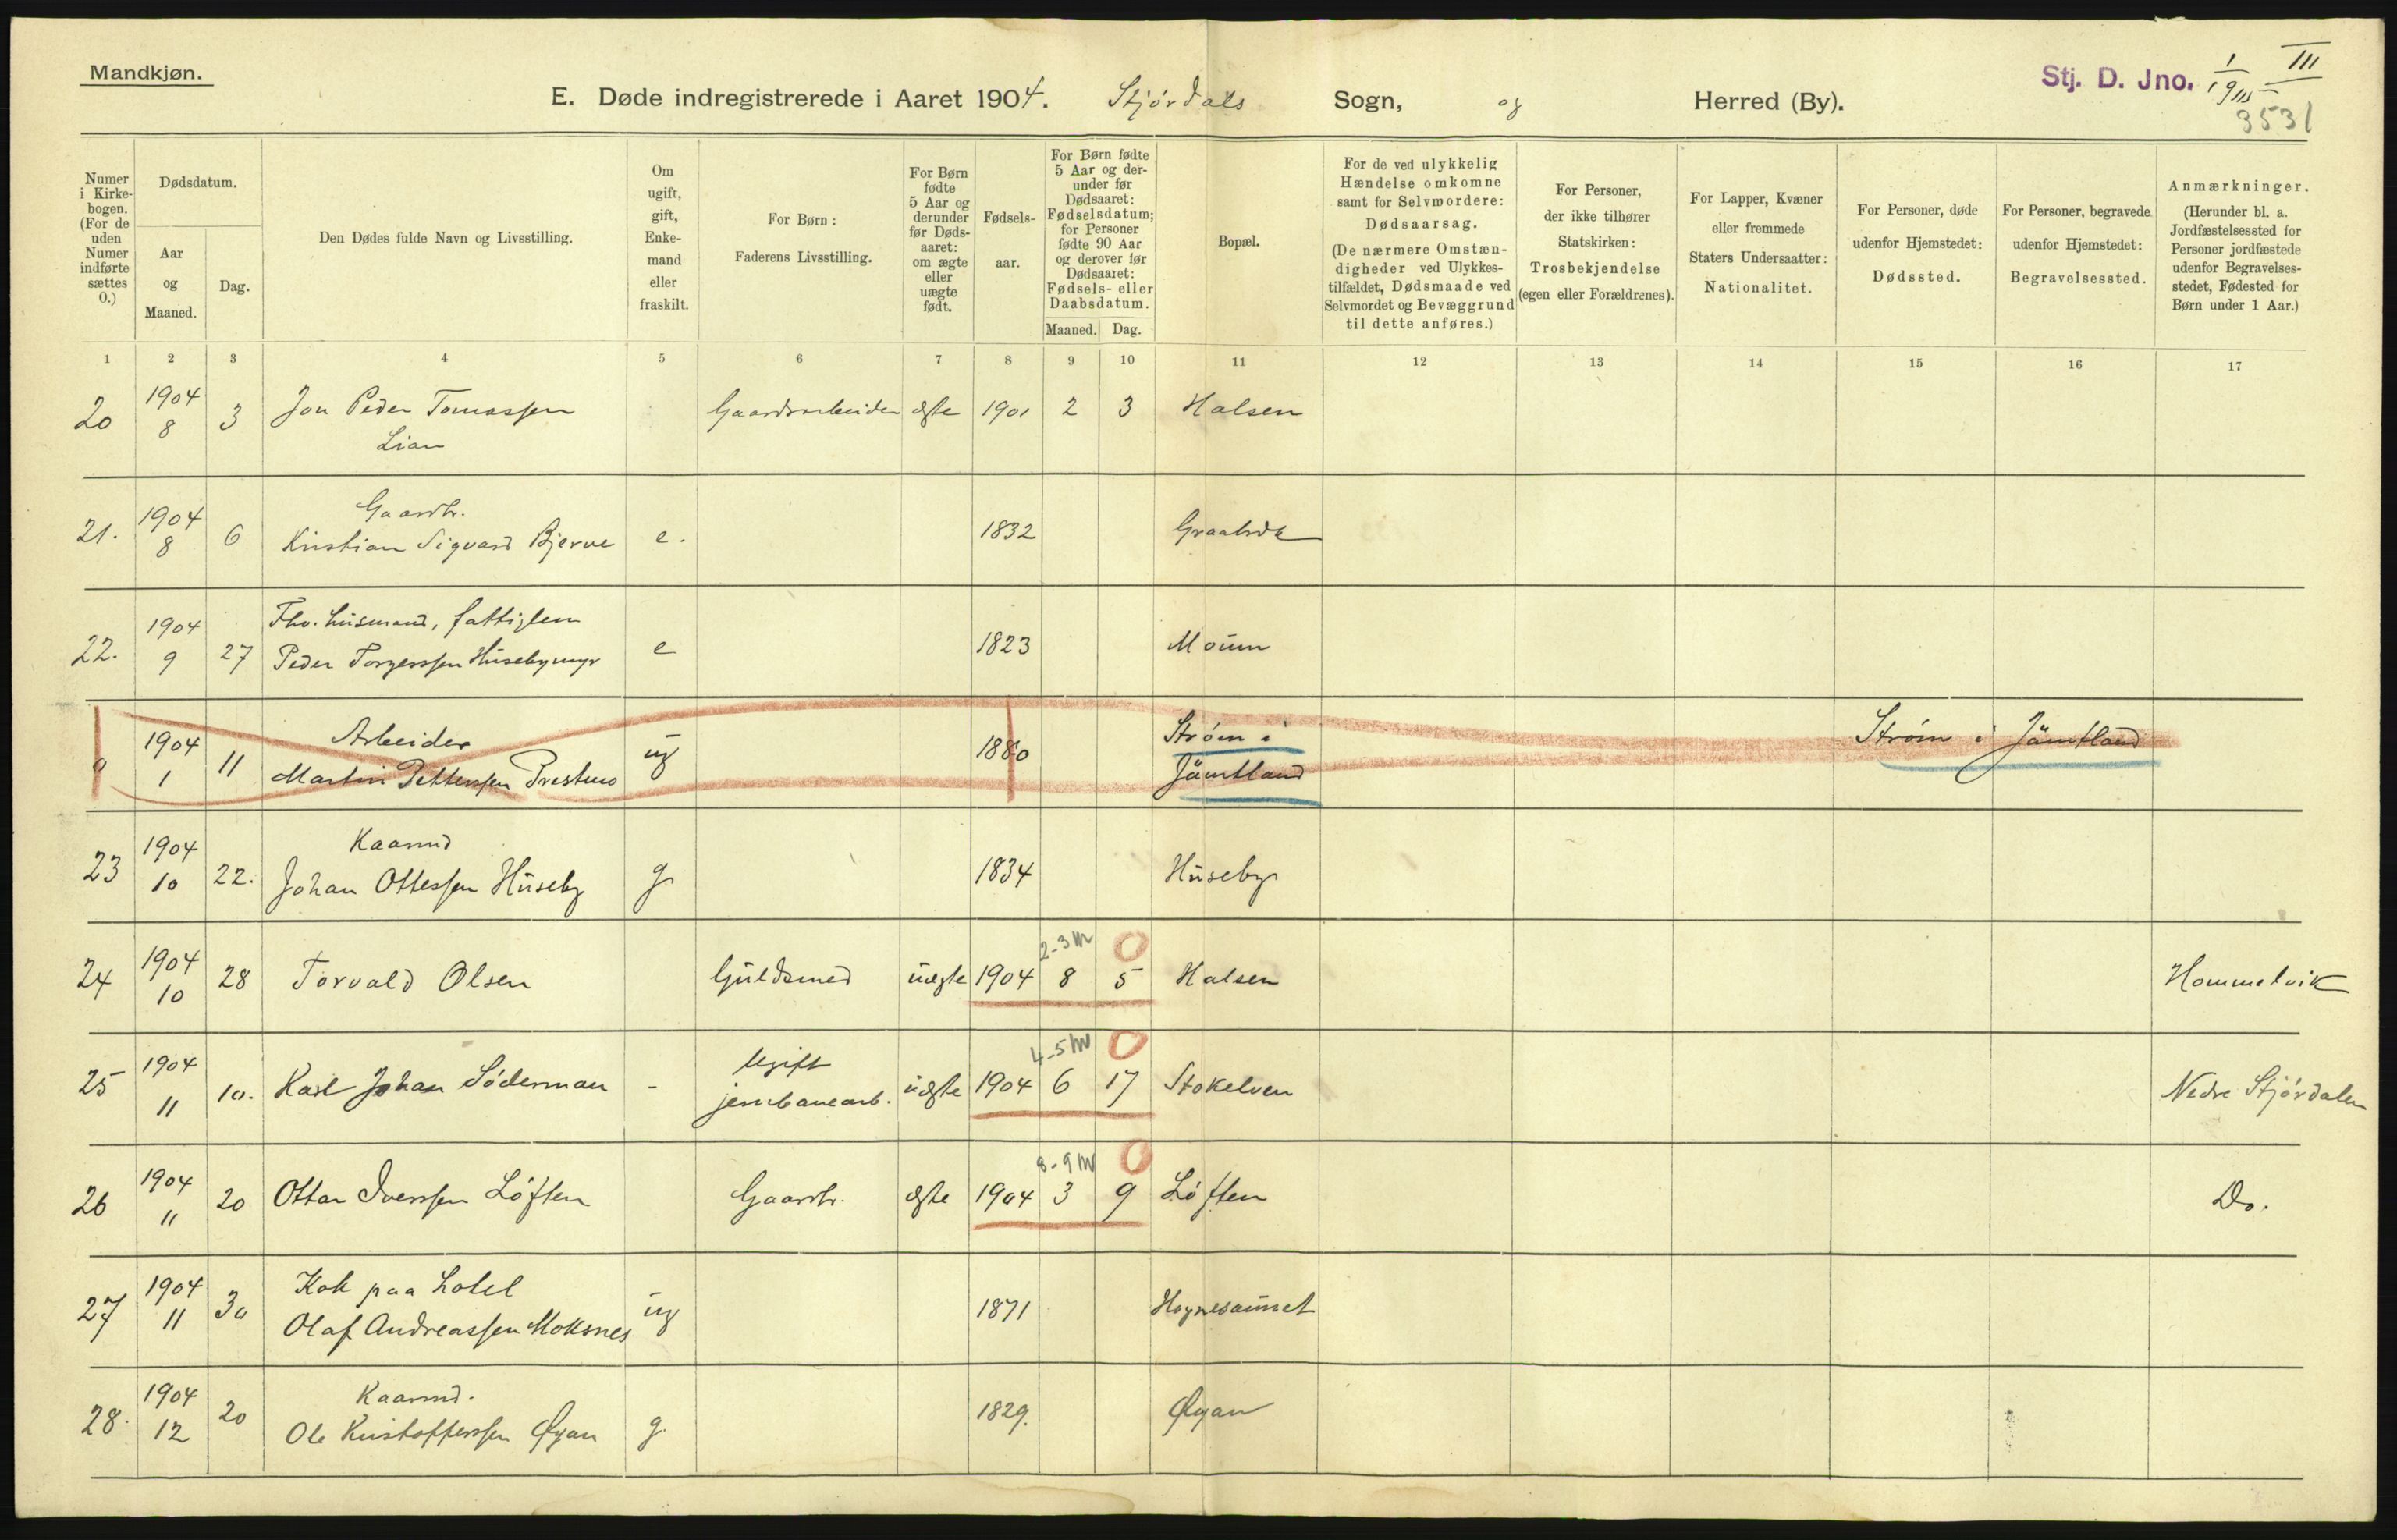 Mandkjøn.
E. Døde indregistrerede i Aaret 1904. Stjørdals Sogn, og Herred (By).
Stj. D. Jno. III
3531
Numer i Kirkebogen. (For de uden Numer indførte sættes 0.)
Dødsdatum.
Aar og Maaned.
Dag.
Den Dødes fulde Navn og Livsstilling.
Om ugift, gift, Enkemand eller fraskilt.
For Børn: Faderens Livsstilling.
For Børn fødte 5 Aar og derunder før Dødsaaret: om ægte eller uægte født.
Fødselsaar.
For Børn fødte 5 Aar og derunder før Dødsaaret: Fødselsdatum; for Personer fødte 90 Aar og derover før Dødsaaret: Fødsels- eller Daabsdatum.
Maaned. Dag.
Bopæl.
For de ved ulykkelig Hændelse omkomne samt for Selvmordere: Dødsaarsag. (De nærmere Omstændigheder ved Ulykkestilfældet, Dødsmaade ved Selvmordet og Bevæggrund til dette anføres.)
For Personer, der ikke tilhører Statskirken: Trosbekjendelse (egen eller Forældrenes).
For Lapper, Kvæner eller fremmede Staters Undersaatter: Nationalitet.
For Personer, døde udenfor Hjemstedet: Dødssted.
For Personer, begravede udenfor Hjemstedet: Begravelsessted.
Anmærkninger. (Herunder bl. a. Jordfæstelsessted for Personer jordfæstede udenfor Begravelsesstedet, Fødested for Børn under 1 Aar.)
1 2 3 4 5 6 7 8 9 10 11 12 13 14 15 16 17
20 1904 8 3 Jon Peder Tomassen Lian Gaardsarbeider ægte 1901 2 3 Halsen
21. 1904 8 6 Gaardbr. Kristian Sigvard Bjerve e. 1832 Graabrek
22. 1904 9 27 Fhv. husmand, fattiglem Peder Torgerssen Husebymyr e 1823 Moum
" 1904 1 11 Arbeider Martin Petterssen Prestmo ug 1880 Strøm i Jämtland Strøm i Jämtland
23 1904 10 22. Kaarmd Johan Ottessen Huseby g 1834 Huseby
2-3 M
24 1904 10 28 Torvald Olsen Guldsmed uægte 1904 8 5 Halsen Hommelvik
4-5 M
25 1904 11 10. Karl Johan Söderman - Ugift jernbanearb. uægte 1904 6 17 Stokelven Nedre Stjørdalen
8-9 M
26 1904 11 20 Ottar Iverssen Løften Gaardbr. ægte 1904 3 9 Løften Do.
27 1904 11 30 Kok paa hotel Olaf Andreassen Moksnes ug 1871 Hognesaunet
28. 1904 12 20 Kaarmd. Ole Kristofferssen Øyan g. 1829. Øyan